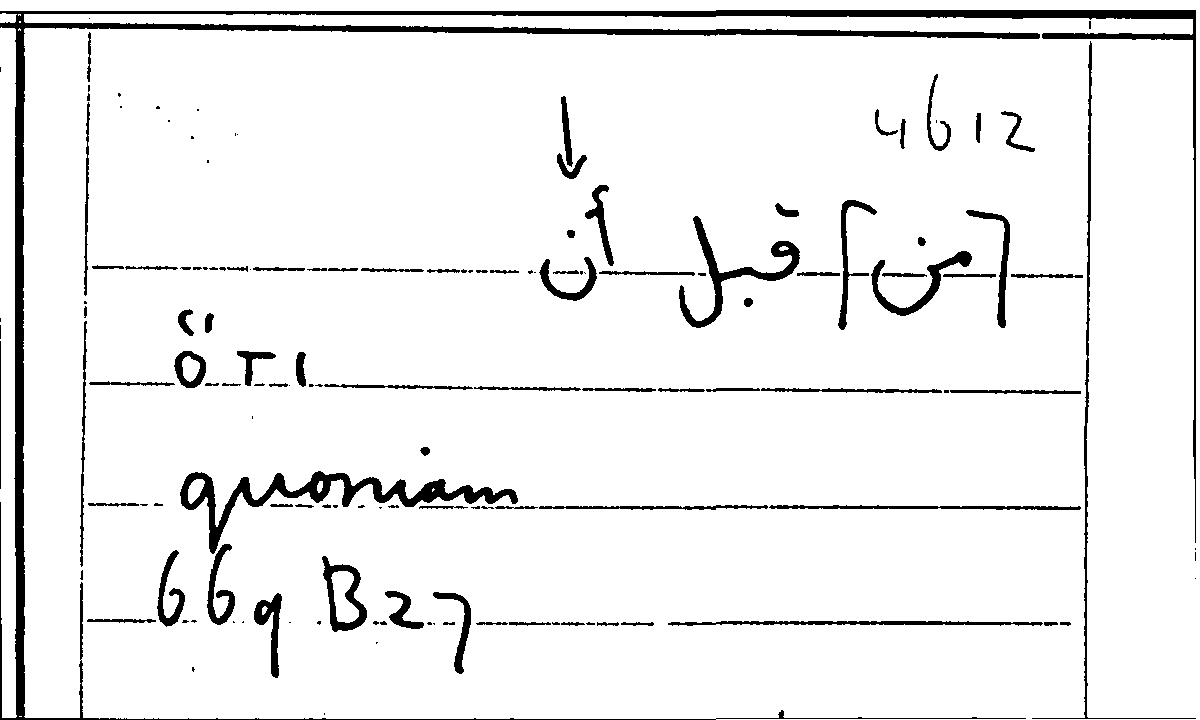 4612
[من] قبل أن
ὅτι
quoniam
669 B27